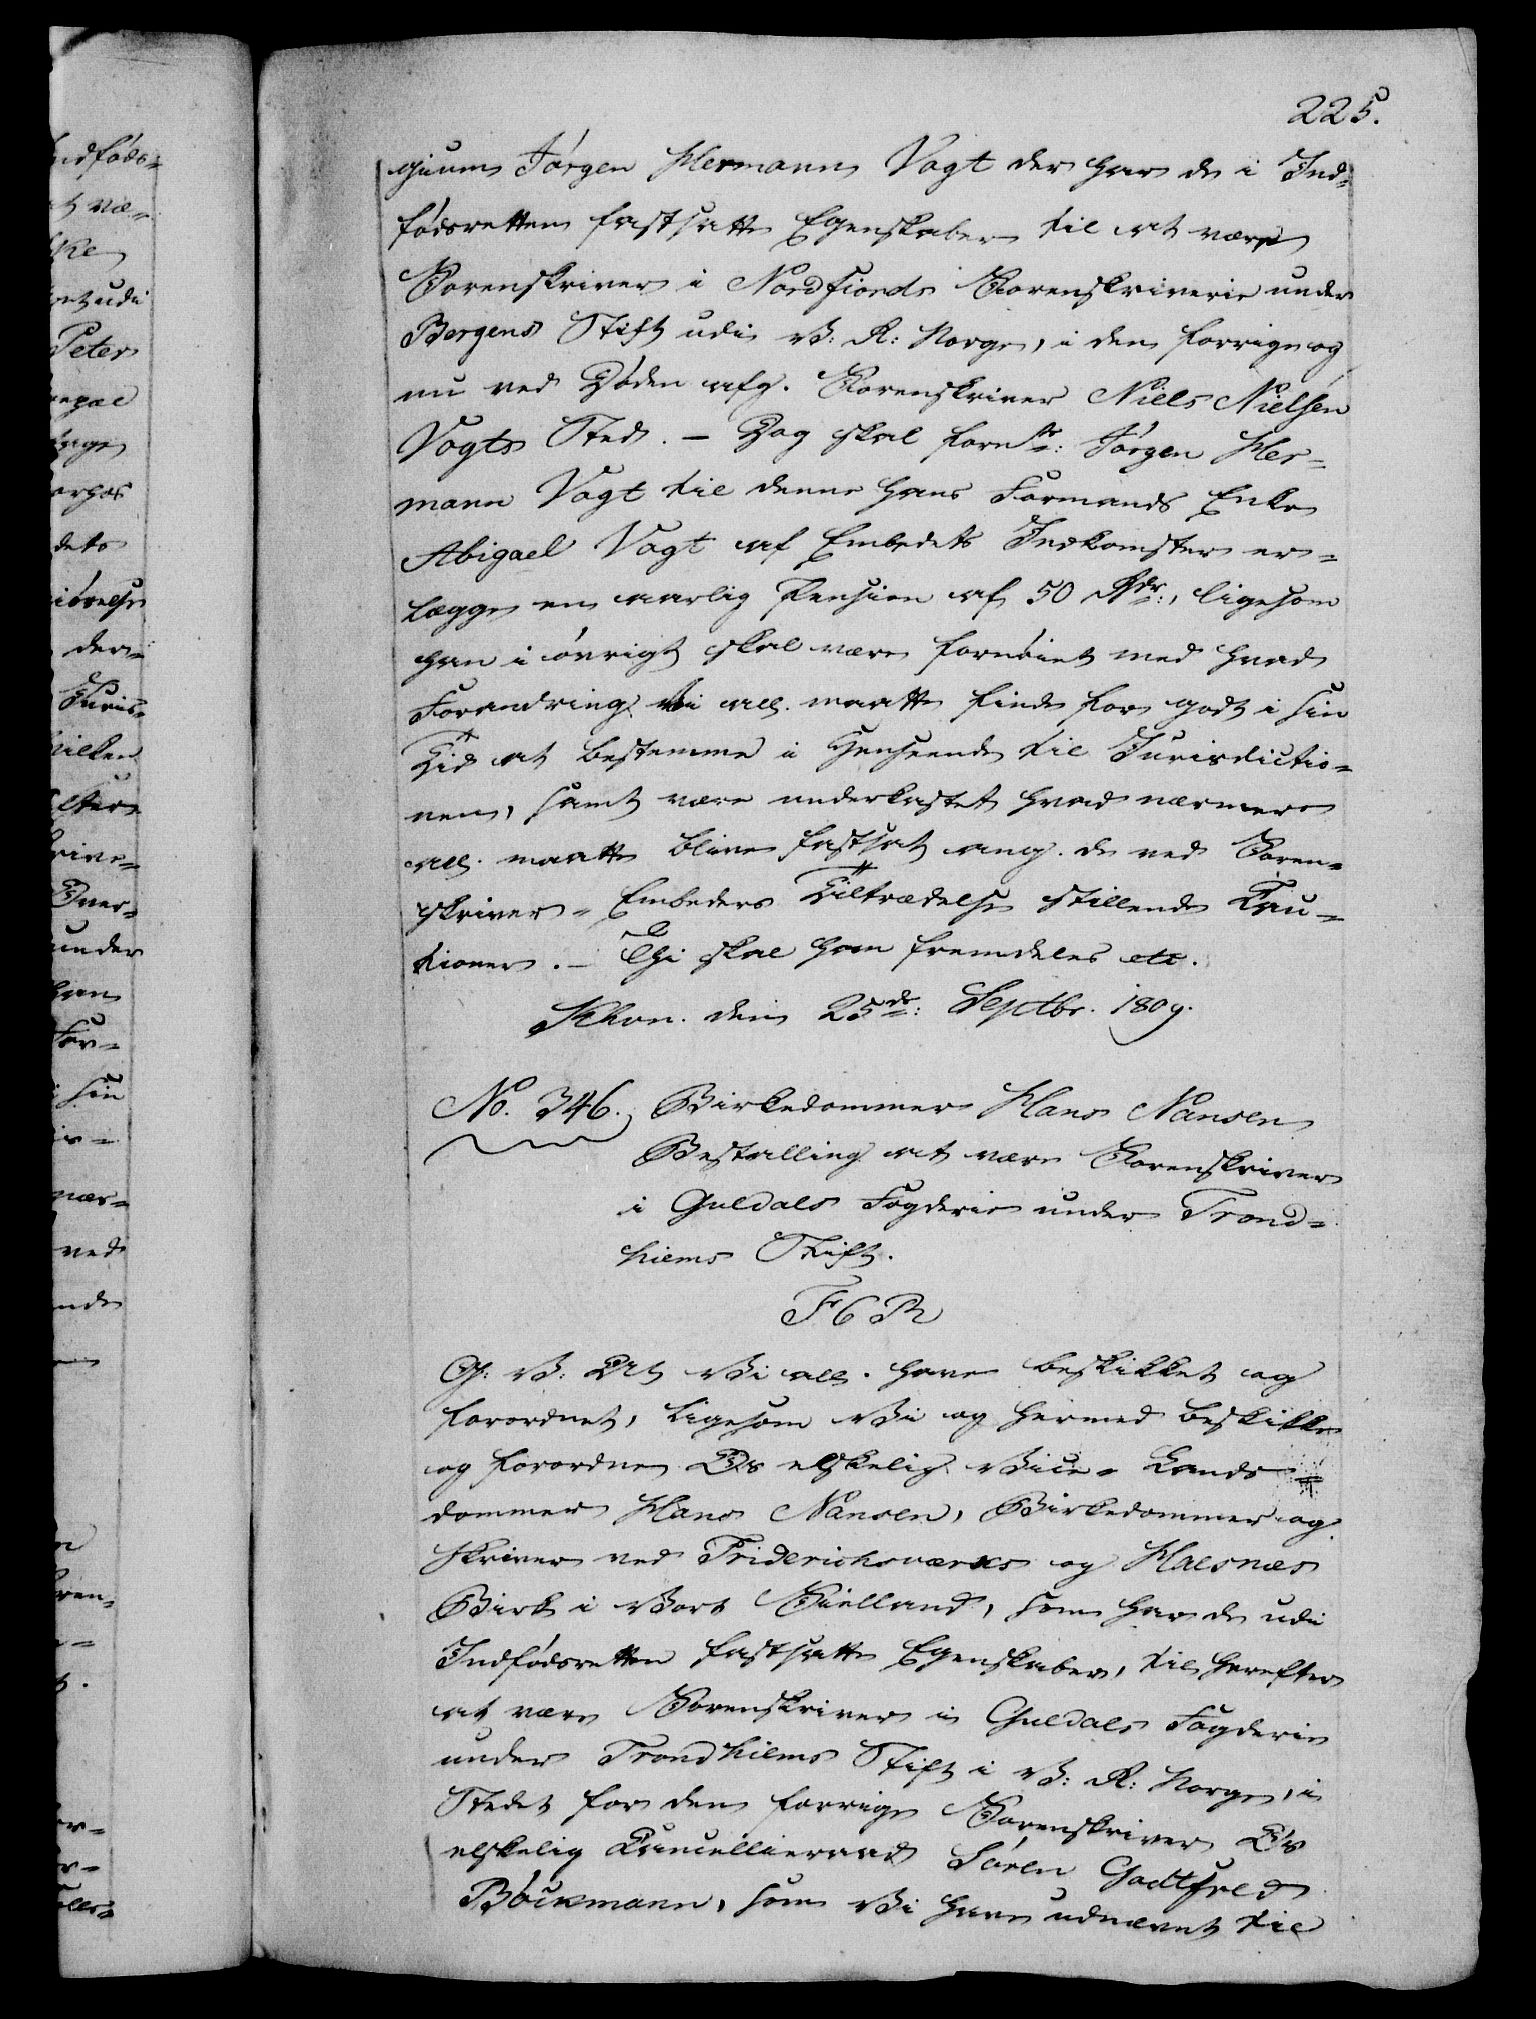 225.
gium Jørgen Hermann Vogt der har de i Ind-
fødsretten fastsatte Egenskaber til at være
Sorenskriver i Nordfiords Sorenskriverie under
Bergens Stift udi V: R: Norge, i den forrige og
nu ved Døden afg. Sorenskriver Niels Nielsen
Vogts Sted. – Dog skal forne: Jørgen Her-
mann Vogt til denne hans Formands Enke
Abigael Vogt af Embedets Indkomster er-
lægge en aarlig Pension af 50 Rdr:, ligesom
han i øvrigt skal være fornøiet med hvad
Forandring Vi all. maatte finde for godt i sin
Tid at bestemme i Henseende til Jurisdictio-
nen, samt være underkastet hvad nærmere
all. maatte blive fastsat ang. de ved Soren-
skriver-Embeders Tiltrædelse stillende Cau-
tioner. – Thi skal han fremdeles etc.
Khvn. den 25de: Septbr. 1809.
No. 346. Birkedommer Hans Nansen
Bestalling at være Sorenskriver
i Guldals Fogderie under Trond-
hiems Stift.
F 6 R
G: V: At Vi all. have beskikket og
forordnet, ligesom Vi og hermed beskikke
og forordne Os elskelig Vice-Lands-
dommer Hans Nansen, Birkedommer og
skriver ved Friderichsværks og Halsnæs
Birk i Vort Siælland, som har de udi
Indfødsretten fastsatte Egenskaber, til herefter
at være Sorenskriver i Guldals Fogderie
under Trondhiems Stift i V: R: Norge, i
Stedet for den forrige Sorenskriver Os
elskelig Cancellieraad Søren Godtfred
Böckmann, som Vi have udnævnt til